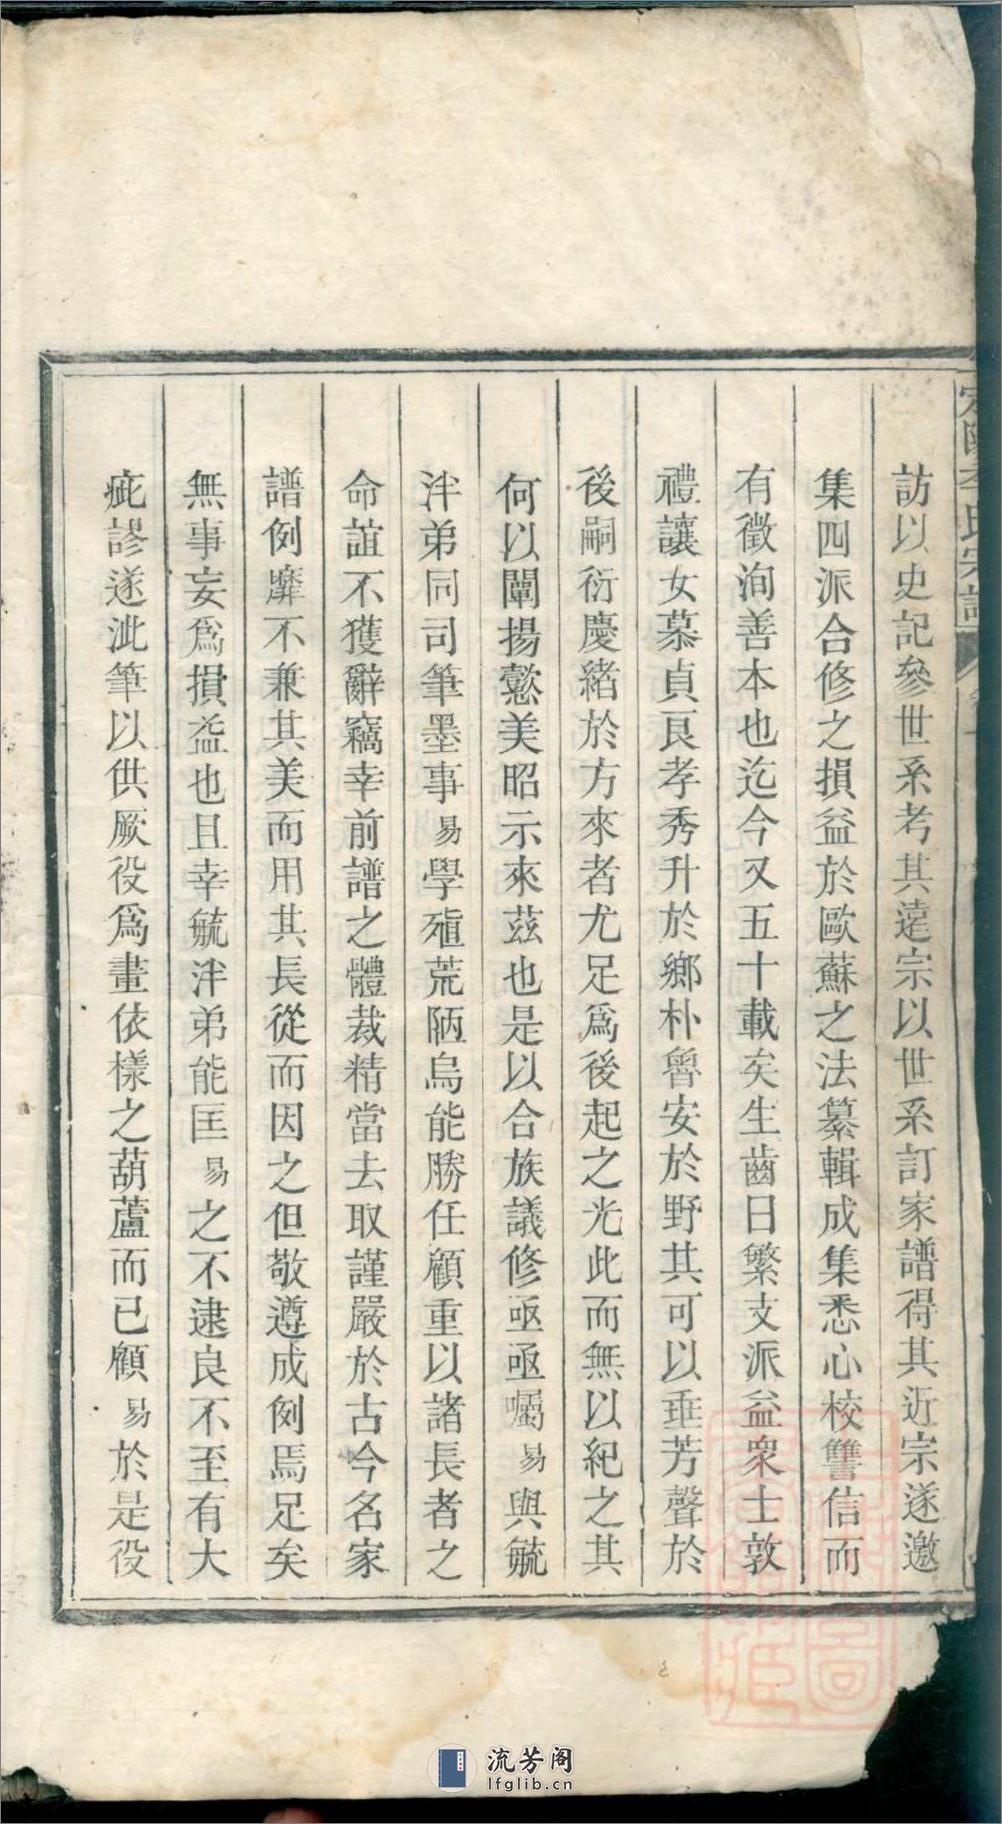 訪以史記參世系考其遠宗以世系訂家譜得其近宗遂邀
集四派合修之損益於歐蘇之法纂輯成集悉心校讐信而
有徵洵善本也迄今又五十載矣生齒日繁支派益衆士敦
禮讓女慕貞良孝秀升於鄉朴魯安於野其可以垂芳聲於
後嗣衍慶緒於方來者尤足爲後起之光此而無以紀之其
何以闡揚懿美昭示來茲也是以合族議修亟亟囑易與毓
泮弟同司筆墨事易學殖荒陋烏能勝任顧重以諸長者之
命誼不獲辭竊幸前譜之體裁精當去取謹嚴於古今名家
譜例靡不兼其美而用其長從而因之但敬遵成例焉足矣
無事妄爲損益也且幸毓泮弟能匡易之不逮良不至有大
疵謬遂泚筆以供厥役爲畫依樣之葫蘆而已顧易於是役
李氏宗譜
流芳阁
lfglib.cn